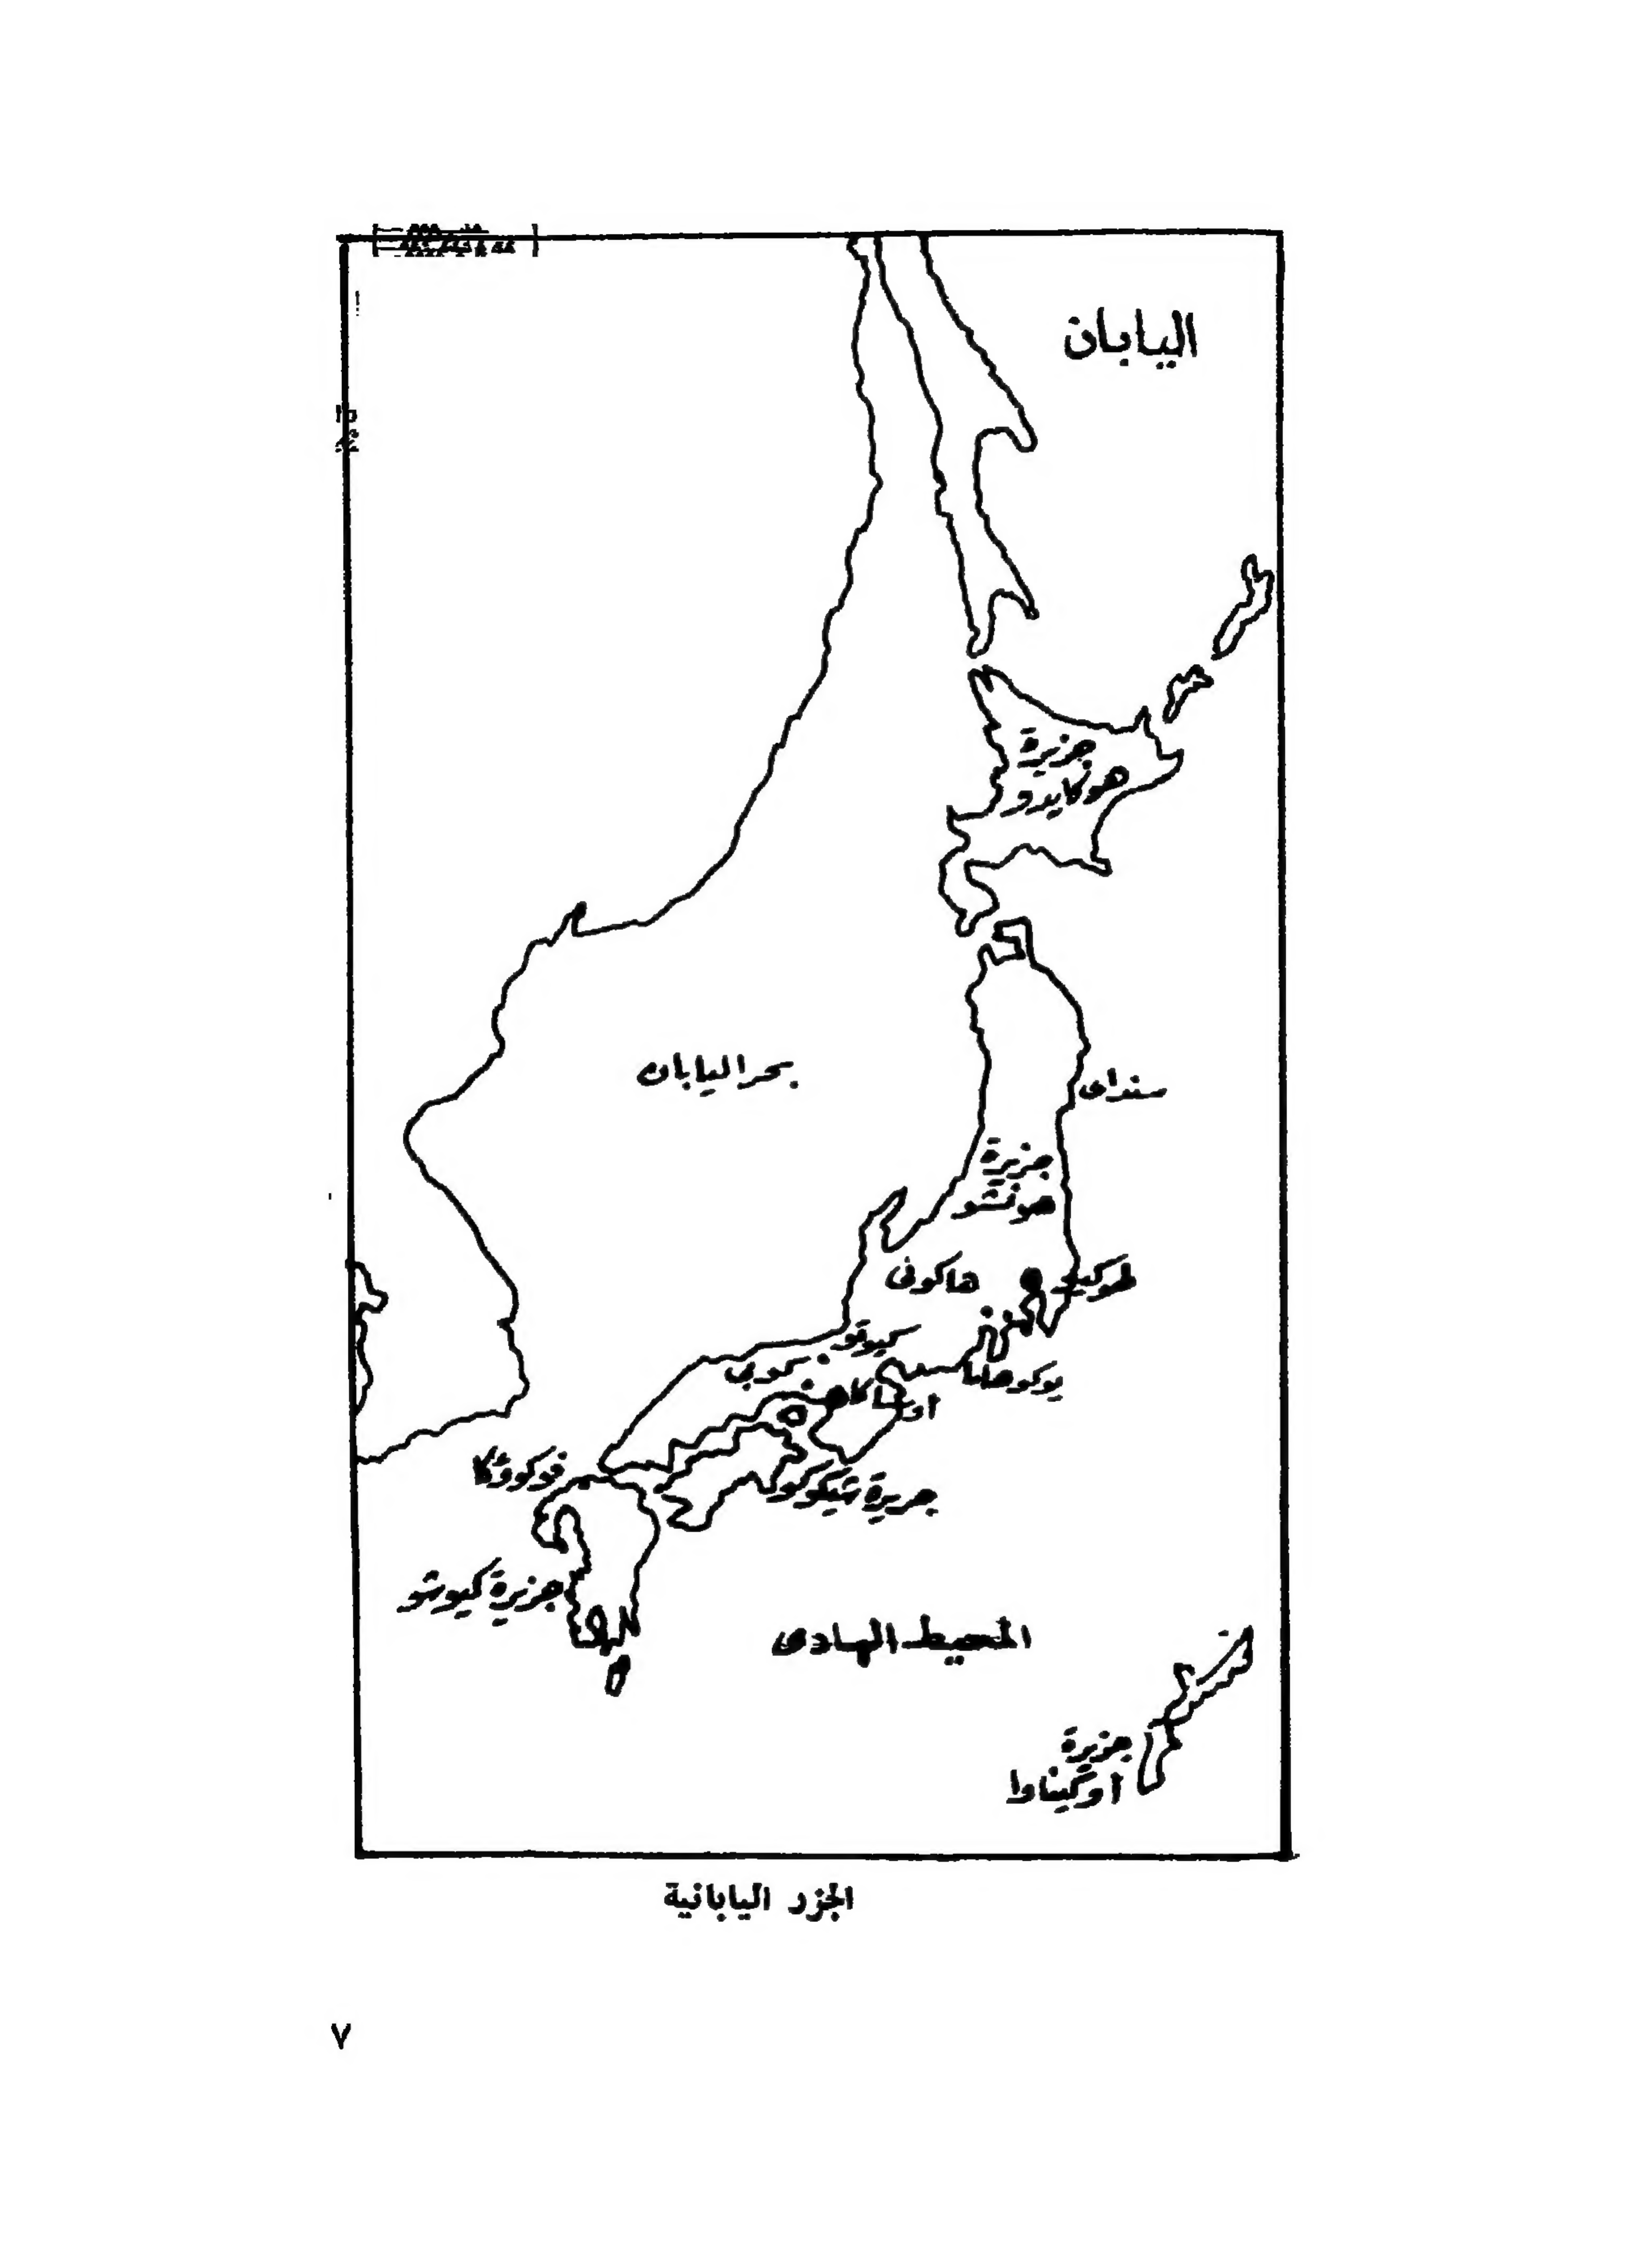 اليابان
جزيرة
هوكايدو
بحر اليابان
سنداى
جزيرة
هونشو
هاكونى
طوكيو
كيوتو
كوبى
يوكوهاما
أوساكا
فوكووكا
جزيرة شيكوكو
جزيرة كيوشو
المحيط الهادى
جزيرة
أوكيناوا
الجزر اليابانية
٧